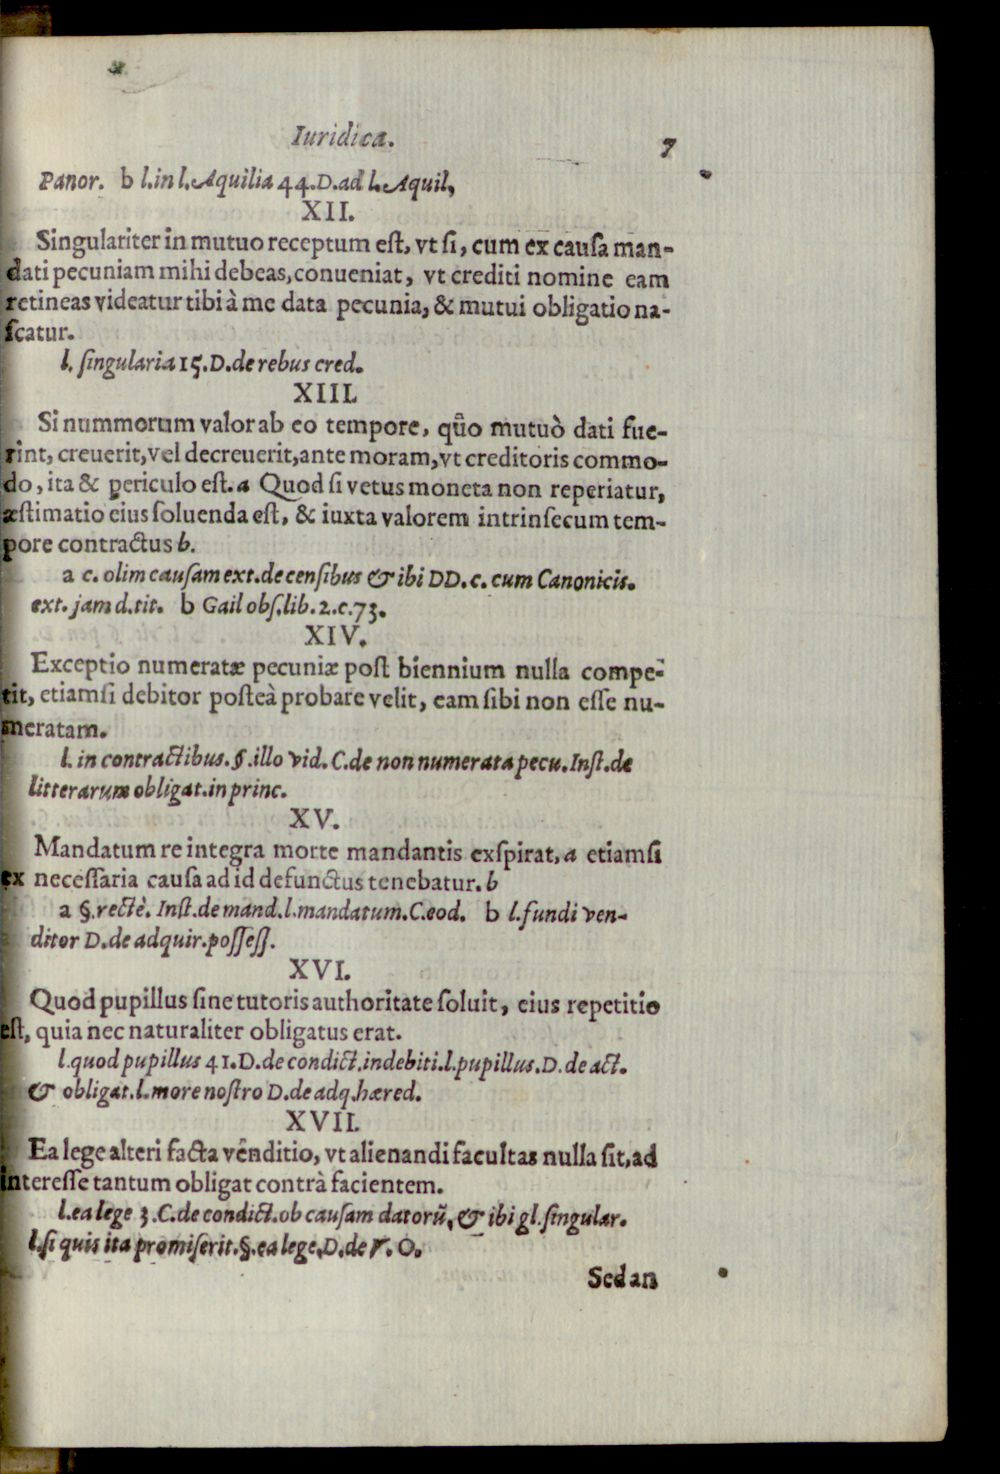 Iuridica. 7
Panor. b l.in l. Aquilia 44.D.ad l. Aquil,
XII.
Singulariter in mutuo receptum est, vt si, cum ex causa man-
dati pecuniam mihi debeas, conueniat, vt crediti nomine eam
retineas videatur tibi à me data pecunia, & mutui obligatio na-
scatur.
l. singularia 15.D.de rebus cred.
XIII.
Si nummorum valor ab eo tempore, qũo mutuò dati fue-
rint, creuerit, vel decreuerit, ante moram, vt creditoris commo-
do, ita & periculo est. a Quod si vetus moneta non reperiatur,
æstimatio eius soluenda est, & iuxta valorem intrinsecum tem-
pore contractus b.
a c. olim causam ext.de censibus & ibi DD.c. cum Canonicis.
ext. jam d.tit. b Gail obs.lib.2.c.73.
XIV.
Exceptio numeratæ pecuniæ post biennium nulla compe-
tit, etiamsi debitor posteà probare velit, eam sibi non esse nu-
meratam.
l. in contractibus.§.illo vid. C.de non numerata pecu. Inst.de
litterarum obligat.in princ.
XV.
Mandatum re integra morte mandantis exspirat, a etiamsi
ex necessaria causa ad id defunctus tenebatur. b
a §.rectè. Inst.de mand.l.mandatum.C.eod. b l.fundi ven-
ditor D.de adquir.possess.
XVI.
Quod pupillus sine tutoris authoritate soluit, eius repetitio
est, quia nec naturaliter obligatus erat.
l.quod pupillus 41.D.de condict.indebiti.l.pupillus.D.de act.
& obligat.l.more nostro D.de adq.hæred.
XVII.
Ea lege alteri facta vẽnditio, vt alienandi facultas nulla sit, ad
interesse tantum obligat contrà facientem.
l.ea lege 3.C.de condict.ob causam datorũ, & ibi gl.singular.
l.si quis ita promiserit.§.ea lege, D.de V. O.
Sed an